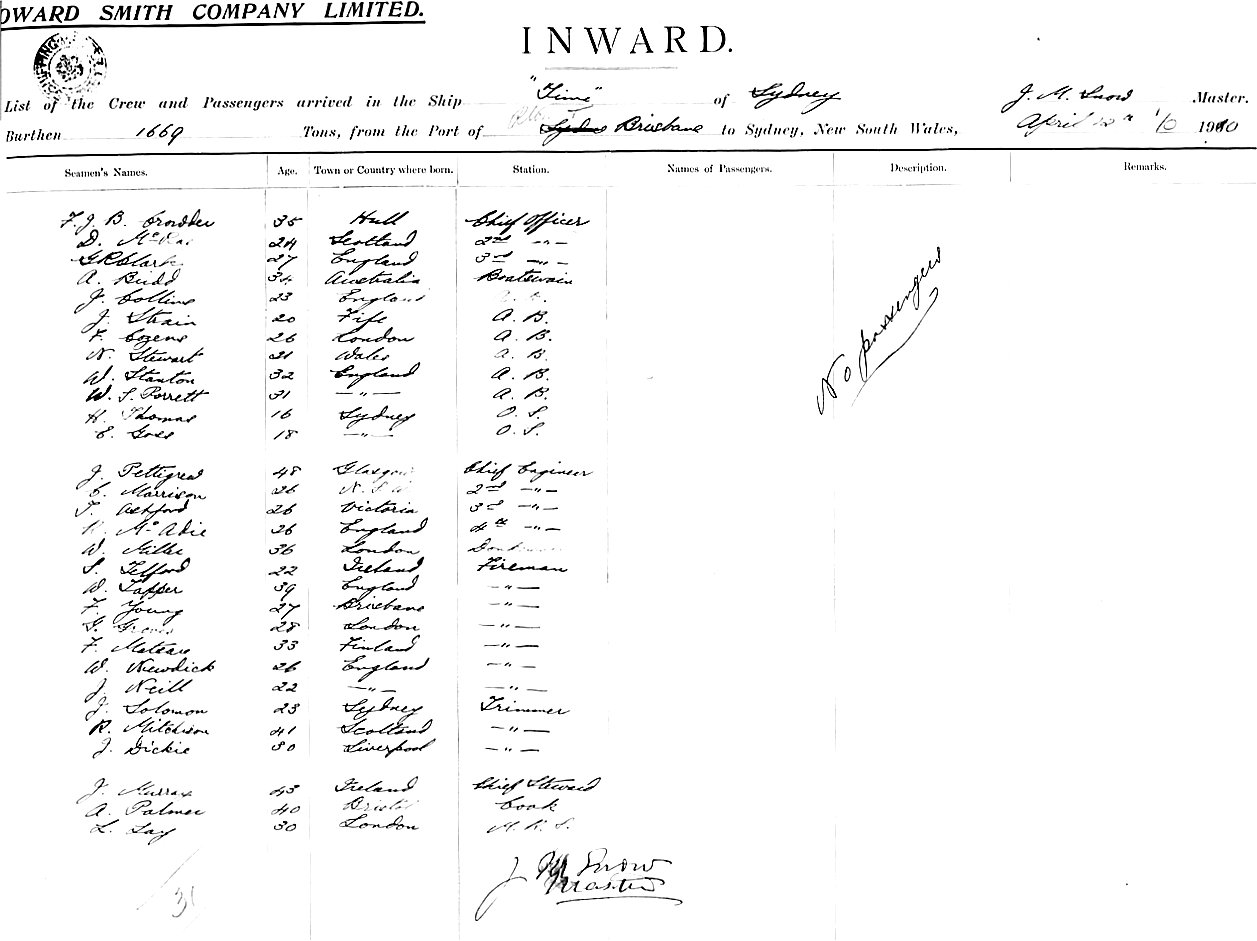 OWARD SMITH COMPANY LIMITED.
INWARD.
List of the Crew and Passengers arrived in the Ship "Time" of Sydney J. M. Snow Master.
Burthen 1669 Tons, from the Port of Sydney Brisbane to Sydney, New South Wales, April 1910
Seamen's Names. Age. Town or Country where born. Station. Names of Passengers. Description. Remarks.
F. J. B. Crowder 35 Hull Chief Officer
D. McRae 24 Scotland 2nd -"-
G R Clark 27 England 3rd -"-
A. Budd 34 Australia Boatswain
J. Collins 23 England
J. Strain 20 Fife A. B.
F. Cozens 26 London A. B.
N. Stewart 21 Wales A. B.
W. Stanton 32 England A. B.
W. S. Porrett 31 -"- A. B.
H. Thomas 16 Sydney O. S.
E. Goss 18 -"- O. S.
No passengers
J. Pettigrew 48 Glasgow Chief Engineer
C. Morrison 26 N. S. W 2nd -"-
T. Ashford 26 Victoria 3rd -"-
McAdie 26 England 4th -"-
W. Miller 36 London
S. Telford 22 Ireland Fireman
W. Tapper 39 England -"-
F. Young 27 Brisbane -"-
G. Groves 28 London -"-
F. 33 Finland -"-
W. Newdick 26 England -"-
J. Neill 22 -"- -"-
J. Solomon 23 Sydney Trimmer
R. Mitchison 41 Scotland -"-
J. Dickie 30 Liverpool -"-
J. Murray 43 Ireland Chief Steward
A. Palmer 40 Bristol Cook
L. Lay 30 London M. R. S.
J M Snow
Master
31